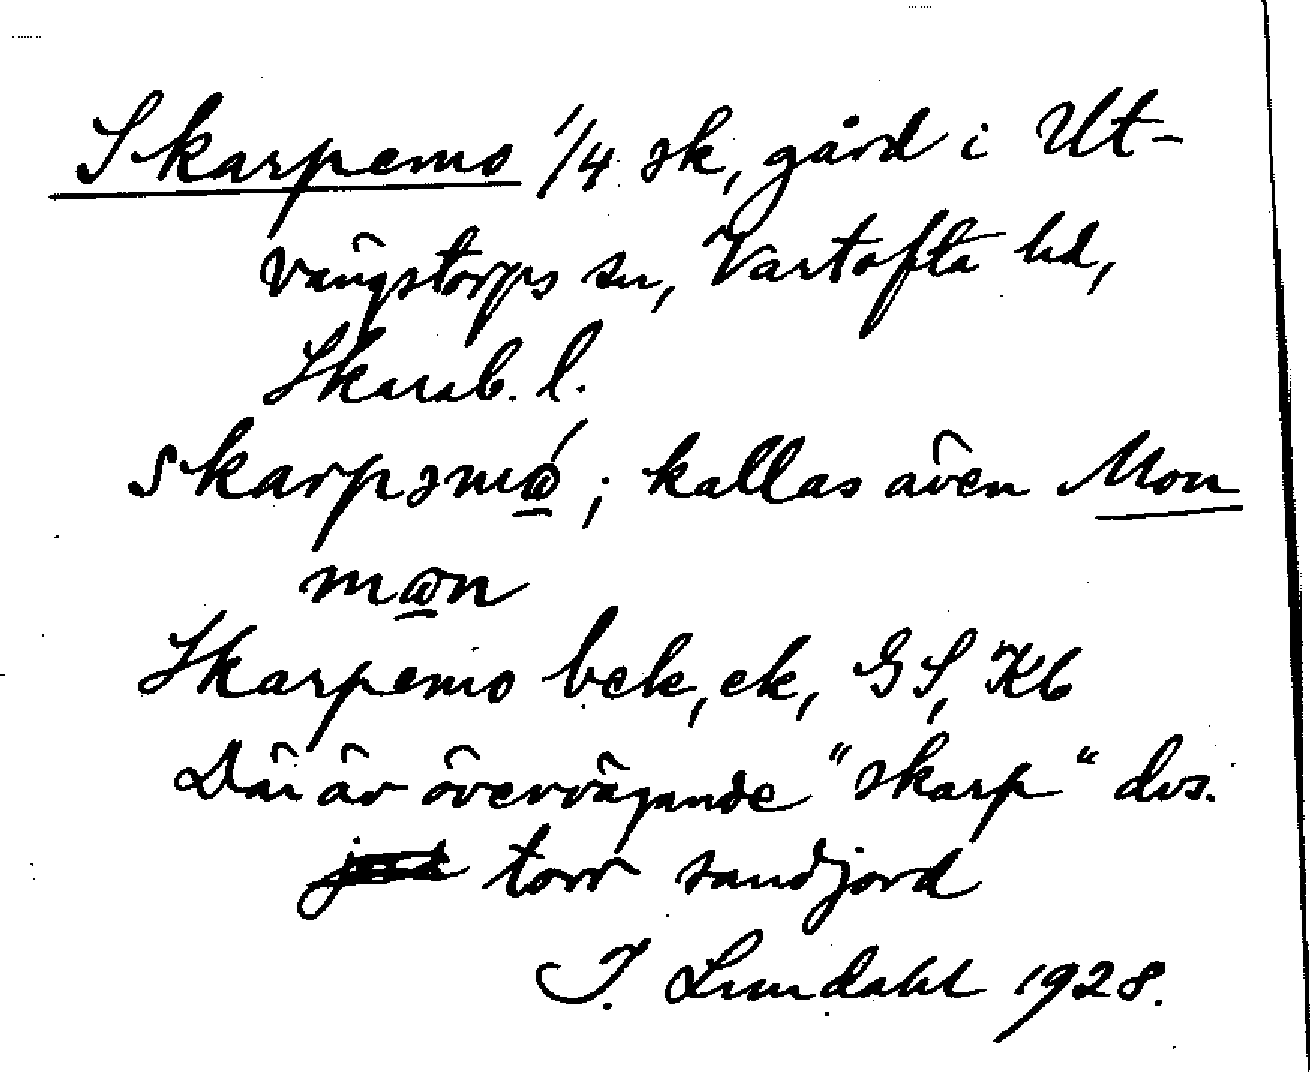 Skarpemo 1/4 sk, gård i Ut-
vängstorps sn, Vartofta hd,
Skarab. l.
skarpəmώ̱; kallas även Mon
mω̱n
Skarpemo bek, ek, GS, Kb
Där är övervägande "skarp" dvs.
torr sandjord
I. Lundahl 1928.